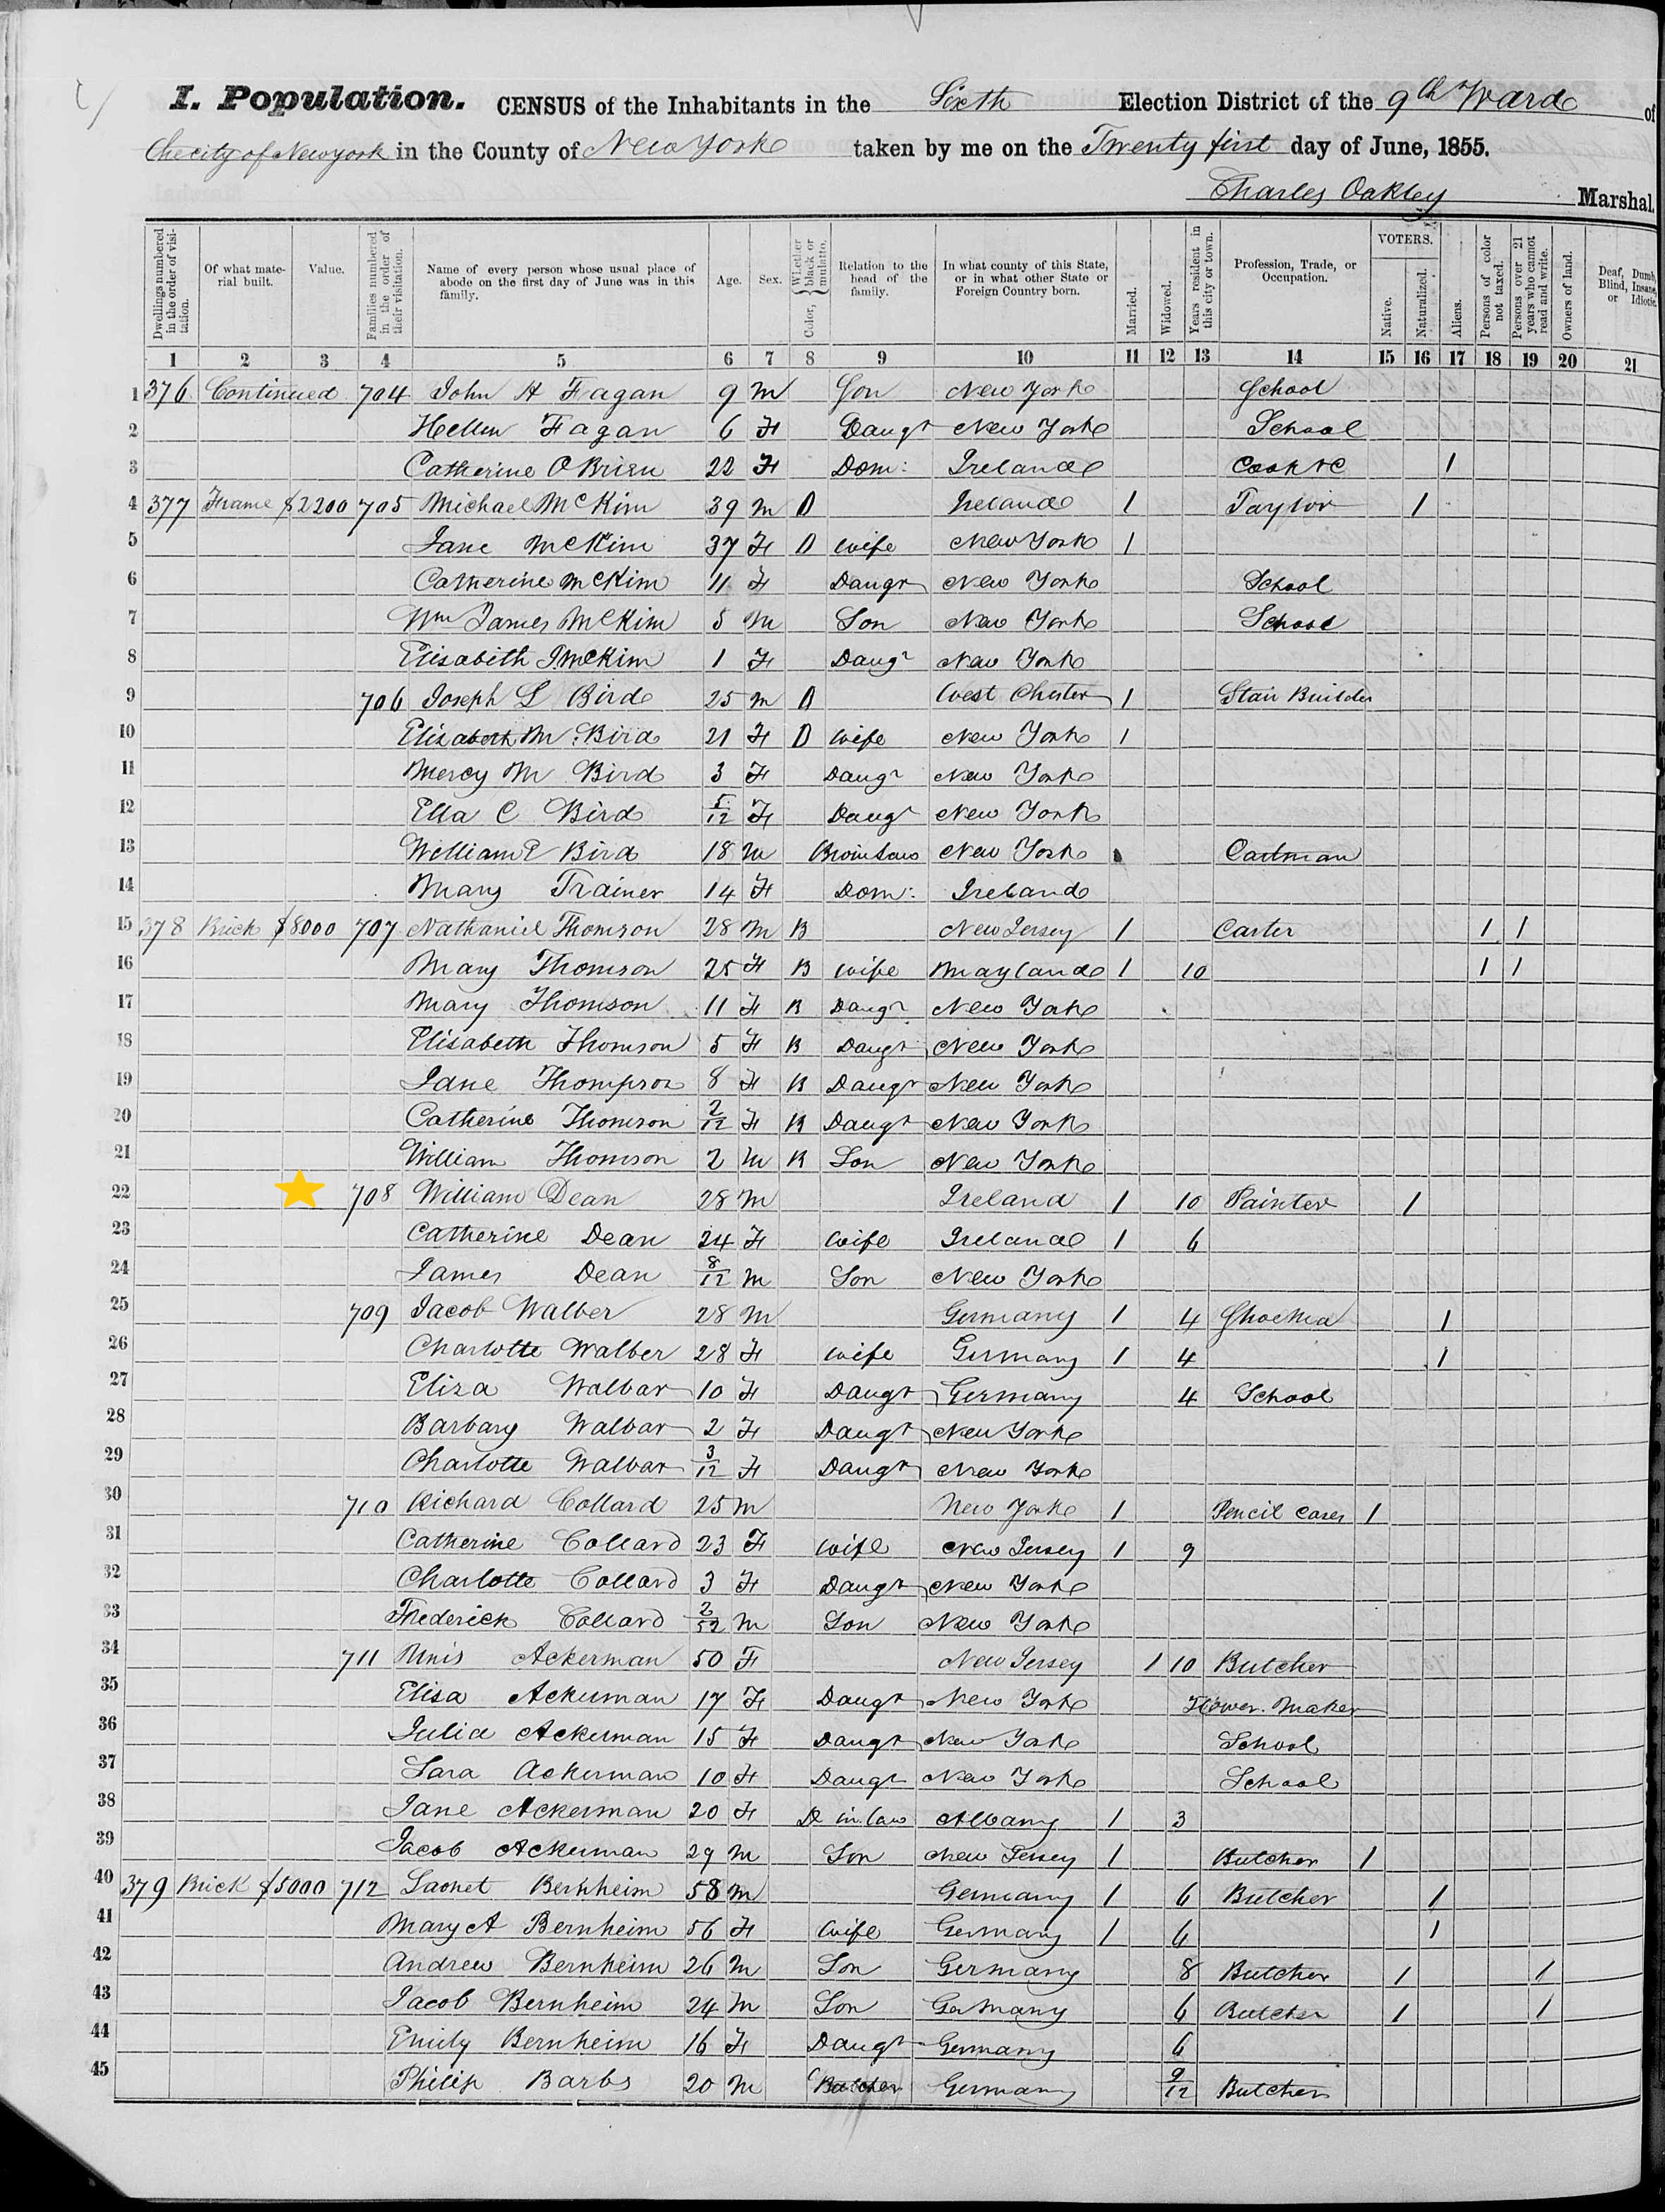 I. Population. CENSUS of the Inhabitants in the Sixth Election District of the 9th Ward of
the city of New york in the County of New York taken by me on the Twenty first day of June, 1855.
Charles Oakley Marshal.
Dwellings numbered in the order of visitation. Of what material built. Value. Families numbered in the order of their visitation. Name of every person whose usual place of abode on the first day of June was in this family. Age. Sex. Color, Whether black or mulatto. Relation to the head of the family. In what county of this State, or in what other State or Foreign Country born. Married. Widowed. Years resident in this city or town. Profession, Trade, or Occupation. VOTERS. Native. Naturalized. Aliens. Persons of color not taxed. Persons over 21 years who cannot read and write. Owners of land. Deaf, Dumb, Blind, Insane, or Idiotic.
1 2 3 4 5 6 7 8 9 10 11 12 13 14 15 16 17 18 19 20 21
1 376 Continued 704 John A Fagan 9 m Son New York School
2 Hellen Fagan 6 F Daugt New York School
3 Catherine O Brien 22 F Dom: Ireland Cook &c 1
4 377 Frame $2200 705 Michael McKim 39 m Ireland 1 Taylor 1
5 Jane McKim 37 F wife New York 1
6 Catherine McKim 11 F Daugr New York School
7 Wm James McKim 5 m Son New York School
8 Elisabith J McKim 1 F Daugr New York
9 706 Joseph L Bird 25 m West Chester 1 Stair Builder
10 Elizabeth M Bird 21 F wife New York 1
11 Mercy M Bird 3 F Daugr New York
12 Ella C Bird 5/12 F Daugt New York
13 William E Bird 18 m New York Cartman
14 Mary Trainer 14 F Dom: Ireland
15 378 Brick $8000 707 Nathaniel Thomson 28 m B New Jersey 1 Carter 1 1
16 Mary Thomson 25 F B wife Mayland 1 10 1 1
17 Mary Thomson 11 F B Daugr New York
18 Elisabeth Thomson 5 F B Daugt New York
19 Jane Thompson 8 F B Daugt New York
20 Catherine Thomson 2/12 F B Daugt New York
21 William Thomson 2 m B Son New York
22 708 William Dean 28 m Ireland 1 10 Painter 1
23 Catherine Dean 24 F wife Ireland 1 6
24 James Dean 8/12 m Son New York
25 709 Jacob Walber 28 m Germany 1 4 1
26 Charlotte Walber 28 F wife Germany 1 4 1
27 Eliza Walbar 10 F Daugt Germany 4 School
28 Barbary Walbar 2 F Daugt New York
29 Charlotte Walbar 3/12 F Daugt New York
30 710 Richard Collard 25 m New York 1 Pencil Cases 1
31 Catherine Collard 23 F wife New Jersey 1 9
32 Charlotte Collard 3 F Daugt New York
33 Frederick Collard 2/52 m Son New York
34 711 Unis Ackerman 50 F New Jersey 1 10 Butcher
35 Elisa Ackerman 17 F Daugt New York Flower. Maker
36 Julia Ackerman 15 F Daugt New York School
37 Sara Ackerman 10 F Daugt New York School
38 Jane Ackerman 20 F D in law Albany 1 3
39 Jacob Ackerman 29 m Son New Jersey 1 Butcher 1
40 379 Brick $5000 712 Bernheim 58 m Germany 1 6 Butcher 1
41 Mary A Bernheim 56 F wife Germany 1 6 1
42 Andrew Bernheim 26 m Son Germany 8 Butcher 1 1
43 Jacob Bernheim 24 m Son Germany 6 Butcher 1 1
44 Emily Bernheim 16 F Daugt Germany 6
45 Philip Barbs 20 m Butcher Germany 9/12 Butcher